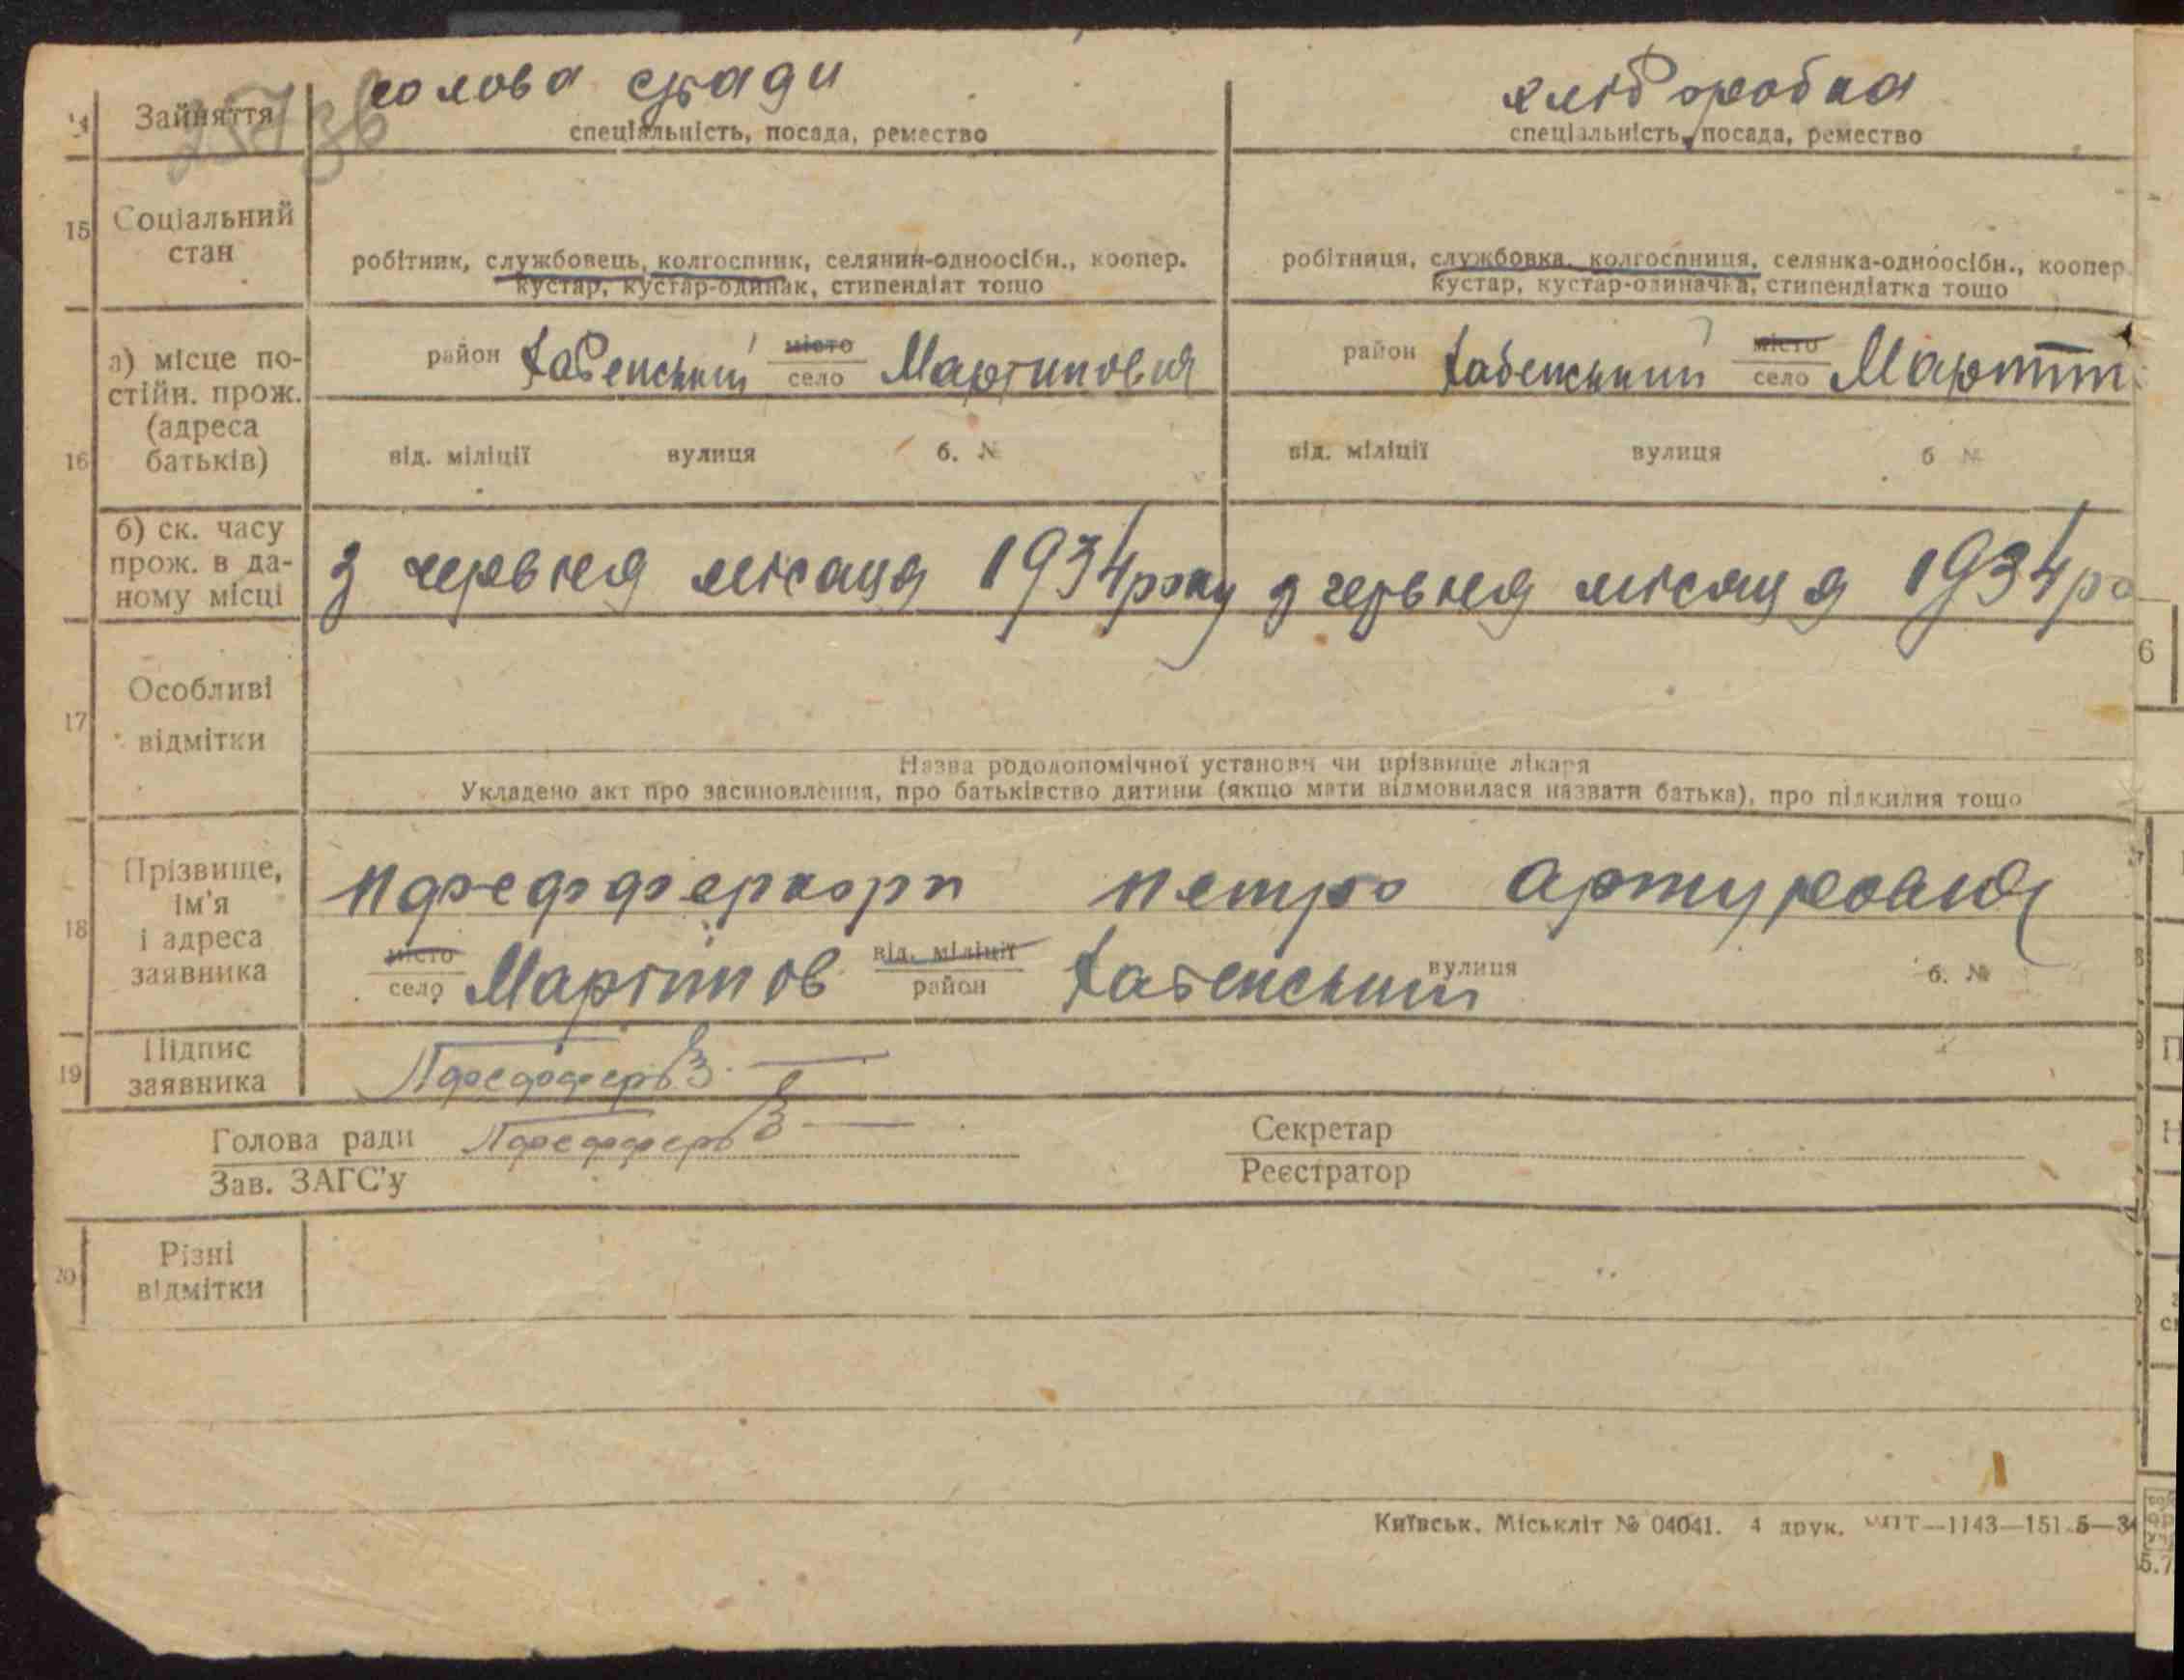 голова сради
хліборобка
14 Зайняття
спеціальність, посада, ремество
спеціальність, посада, ремество
15 Соціальний стан
робітник, службовець, колгоспник, селянин-одноосібн., коопер.
кустар, кустар-одинак, стипендіат тощо
робітниця, службовка, колгоспниця, селянка-одноосібн., коопер.
кустар, кустар-одиначка, стипендіатка тощо
16
а) місце по-
стійн. прож.
(адреса
батьків)
район Хабенський місто
село
район Хабенський місто
село
від. міліції вулиця б. №
від. міліції вулиця б №
б) ск. часу
прож. в да-
ному місці
з червня місаця 1934 року
з червня місаця 1934 ро
17 Особливі
відмітки
Назва рододопомічної установи чи прізвище лікаря
Укладено акт про засиновлення, про батьківство дитини (якщо мати відмовилася назвати батька), про підкидня тощо
18
Прізвище,
ім'я
і адреса
заявника
петро
місто
село
від. міліції
район Хабенський вулиця б. №
19 Підпис
заявника
Голова ради
Зав. ЗАГС'у
Секретар
Реєстратор
20 Різні
відмітки
Київськ. Міськліт № 04041. 4 друк.
6